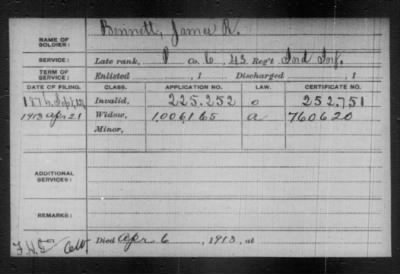 NAME OF SOLDIER: Bennett, James R.
SERVICE: Late rank, P Co. G, 43 Reg't Ind Inf.
TERM OF SERVICE: Enlisted , 1 Discharged , 1
DATE OF FILING. CLASS. APPLICATION NO. LAW. CERTIFICATE NO.
Invalid, 225.252 o 252.751
1913 Apr 21 Widow, 1,006,165 a 760620
Minor,
ADDITIONAL SERVICES:
REMARKS:
Died Apr 6, 1913, at